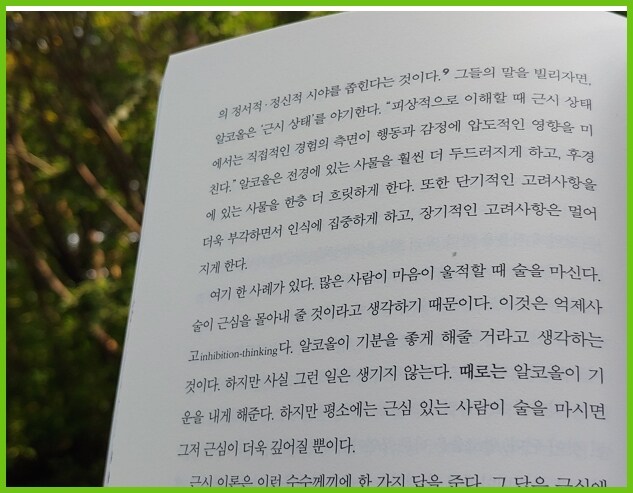 의 정서적·정신적 시야를 좁힌다는 것이다.⁹ 그들의 말을 빌리자면,
알코올은 ‘근시 상태’를 야기한다. “피상적으로 이해할 때 근시 상태
에서는 직접적인 경험의 측면이 행동과 감정에 압도적인 영향을 미
친다.” 알코올은 전경에 있는 사물을 훨씬 더 두드러지게 하고, 후경
에 있는 사물을 한층 더 흐릿하게 한다. 또한 단기적인 고려사항을
더욱 부각하면서 인식에 집중하게 하고, 장기적인 고려사항은 멀어
지게 한다.
여기 한 사례가 있다. 많은 사람이 마음이 울적할 때 술을 마신다.
술이 근심을 몰아내 줄 것이라고 생각하기 때문이다. 이것은 억제사
고inhibition-thinking다. 알코올이 기분을 좋게 해줄 거라고 생각하는
것이다. 하지만 사실 그런 일은 생기지 않는다. 때로는 알코올이 기
운을 내게 해준다. 하지만 평소에는 근심 있는 사람이 술을 마시면
그저 근심이 더욱 깊어질 뿐이다.
근시 이론은 이런 수수께끼에 한 가지 답을 준다. 그 답은 근심에